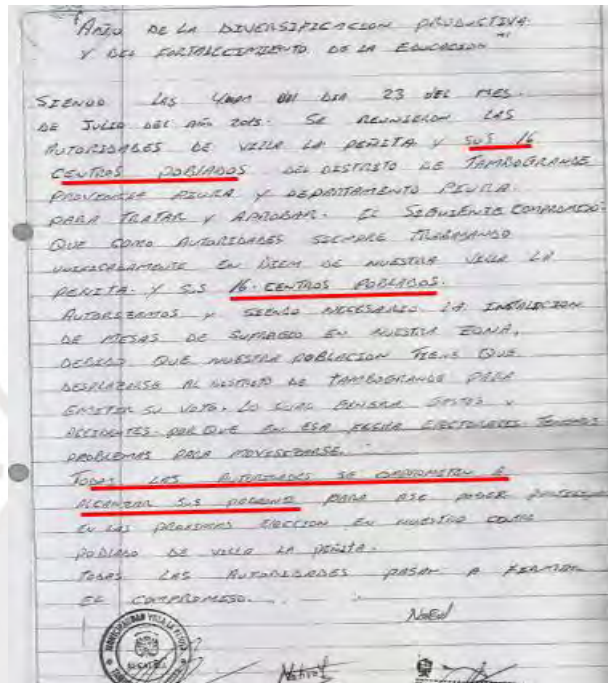 "AÑO DE LA DIVERSIFICACION PRODUCTIVA
Y DEL FORTALECIMIENTO DE LA EDUCACION"
SIENDO LAS 4 DEL DIA 23 DEL MES
DE JULIO DEL AÑO 2015. SE REUNIERON LAS
AUTORIDADES DE VILLA LA PEÑITA Y SUS 16
CENTROS POBLADOS DEL DISTRITO DE TAMBOGRANDE
PROVINCIA PIURA Y DEPARTAMENTO PIURA.
PARA TRATAR Y APROBAR. EL SIGUIENTE COMPROMISO:
QUE COMO AUTORIDADES SIEMPRE TRABAJANDO
EN BIEN DE NUESTRA VILLA LA
PEÑITA. Y SUS 16. CENTROS POBLADOS.
AUTORIZAMOS Y SIENDO NECESARIO LA INSTALACION
DE MESAS DE SUFRAGIO EN NUESTRA ZONA,
DEBIDO QUE NUESTRA POBLACION TIENE QUE
DESPLAZARSE AL DISTRITO DE TAMBOGRANDE PARA
EMITIR SU VOTO. LO CUAL GENERA GASTOS Y
ACCIDENTES. POR QUE EN ESA FECHA ELECTORALES TENEMOS
PROBLEMAS PARA
TODAS LAS AUTORIDADES SE COMPROMETEN A
ALCANZAR SUS PARA ASI PODER
EN LAS PROXIMAS ELECCION EN NUESTRO CENTRO
POBLADO DE VILLA LA PEÑITA.
TODAS LAS AUTORIDADES PASAN A FIRMAR
EL COMPROMISO.